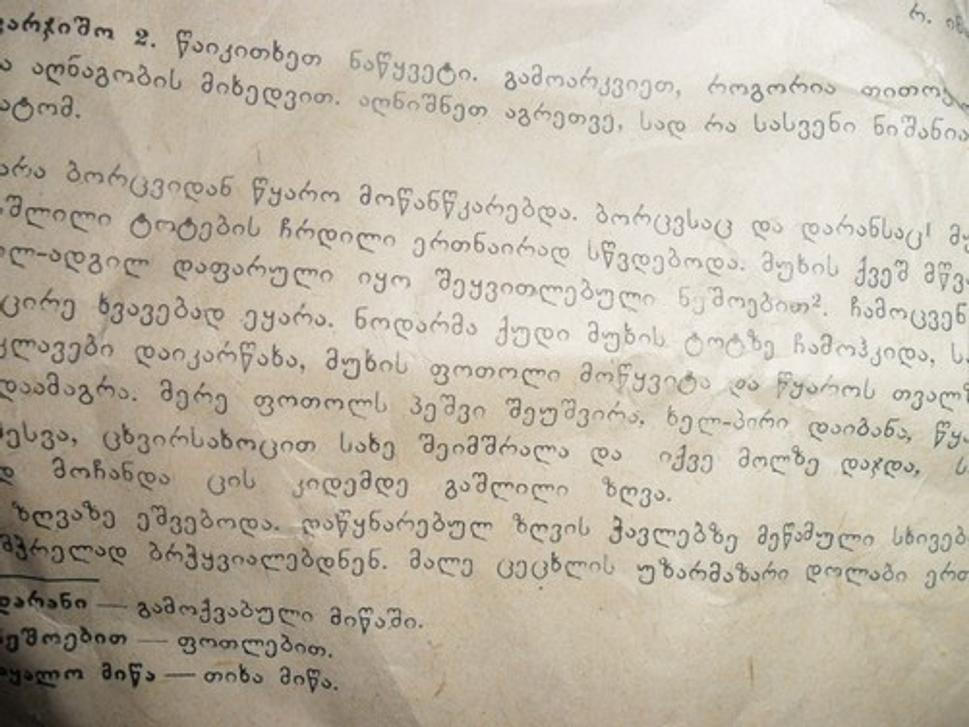 რ. ინ
ვარჯიშო 2. წაიკითხეთ ნაწყვეტი. გამოარკვიეთ, როგორია თითოე
ა აღნაგობის მიხედვით. აღნიშნეთ აგრეთვე, სად რა სასვენი ნიშანია
ატომ.
არა ბორცვიდან წყარო მოწანწკარებდა. ბორცვსაც და დარანსაც¹ მუ
შლილი ტოტების ჩრდილი ერთნაირად სწვდებოდა. მუხის ქვეშ მწვ
ლ-ადგილ დაფარული იყო შეყვითლებული ნეშოებით². ჩამოცვენ
ცირე ხვავებად ეყარა. ნოდარმა ქუდი მუხის ტოტზე ჩამოჰკიდა, ს
კლავები დაიკარწახა, მუხის ფოთოლი მოწყვიტა და წყაროს თვალზ
დაამაგრა. მერე ფოთოლს პეშვი შეუშვირა, ხელ-პირი დაიბანა, წყა
ესვა, ცხვირსახოცით სახე შეიმშრალა და იქვე მოლზე დაჯდა, ს
დ მოჩანდა ცის კიდემდე გაშლილი ზღვა.
ზღვაზე ეშვებოდა. დაწყნარებულ ზღვის ჭავლებზე მეწამული სხივებ
მჭრელად ბრჭყვიალებდნენ. მალე ცეცხლის უზარმაზარი დოლაბი ერთ
დარანი — გამოქვაბული მიწაში.
ნეშოებით — ფოთლებით.
აყალო მიწა — თიხა მიწა.